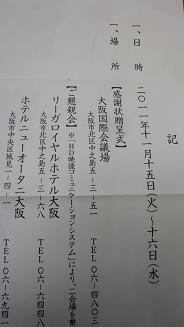 記
一、日　時　二〇一一年十一月十五日(火)〜十六日(水)
一、場　所
【感謝状贈呈式】
大阪国際会議場
大阪市北区中之島五-三-五一　TEL〇六-四八〇三
【ご懇親会】※「HD映像コミュニケーションシステム」により、二会場を繋
リーガロイヤルホテル大阪
大阪市北区中之島五-三-六八　TEL〇六-六四四
ホテルニューオータニ大阪
大阪市中央区城見一-四-一　TEL〇六-六九四一